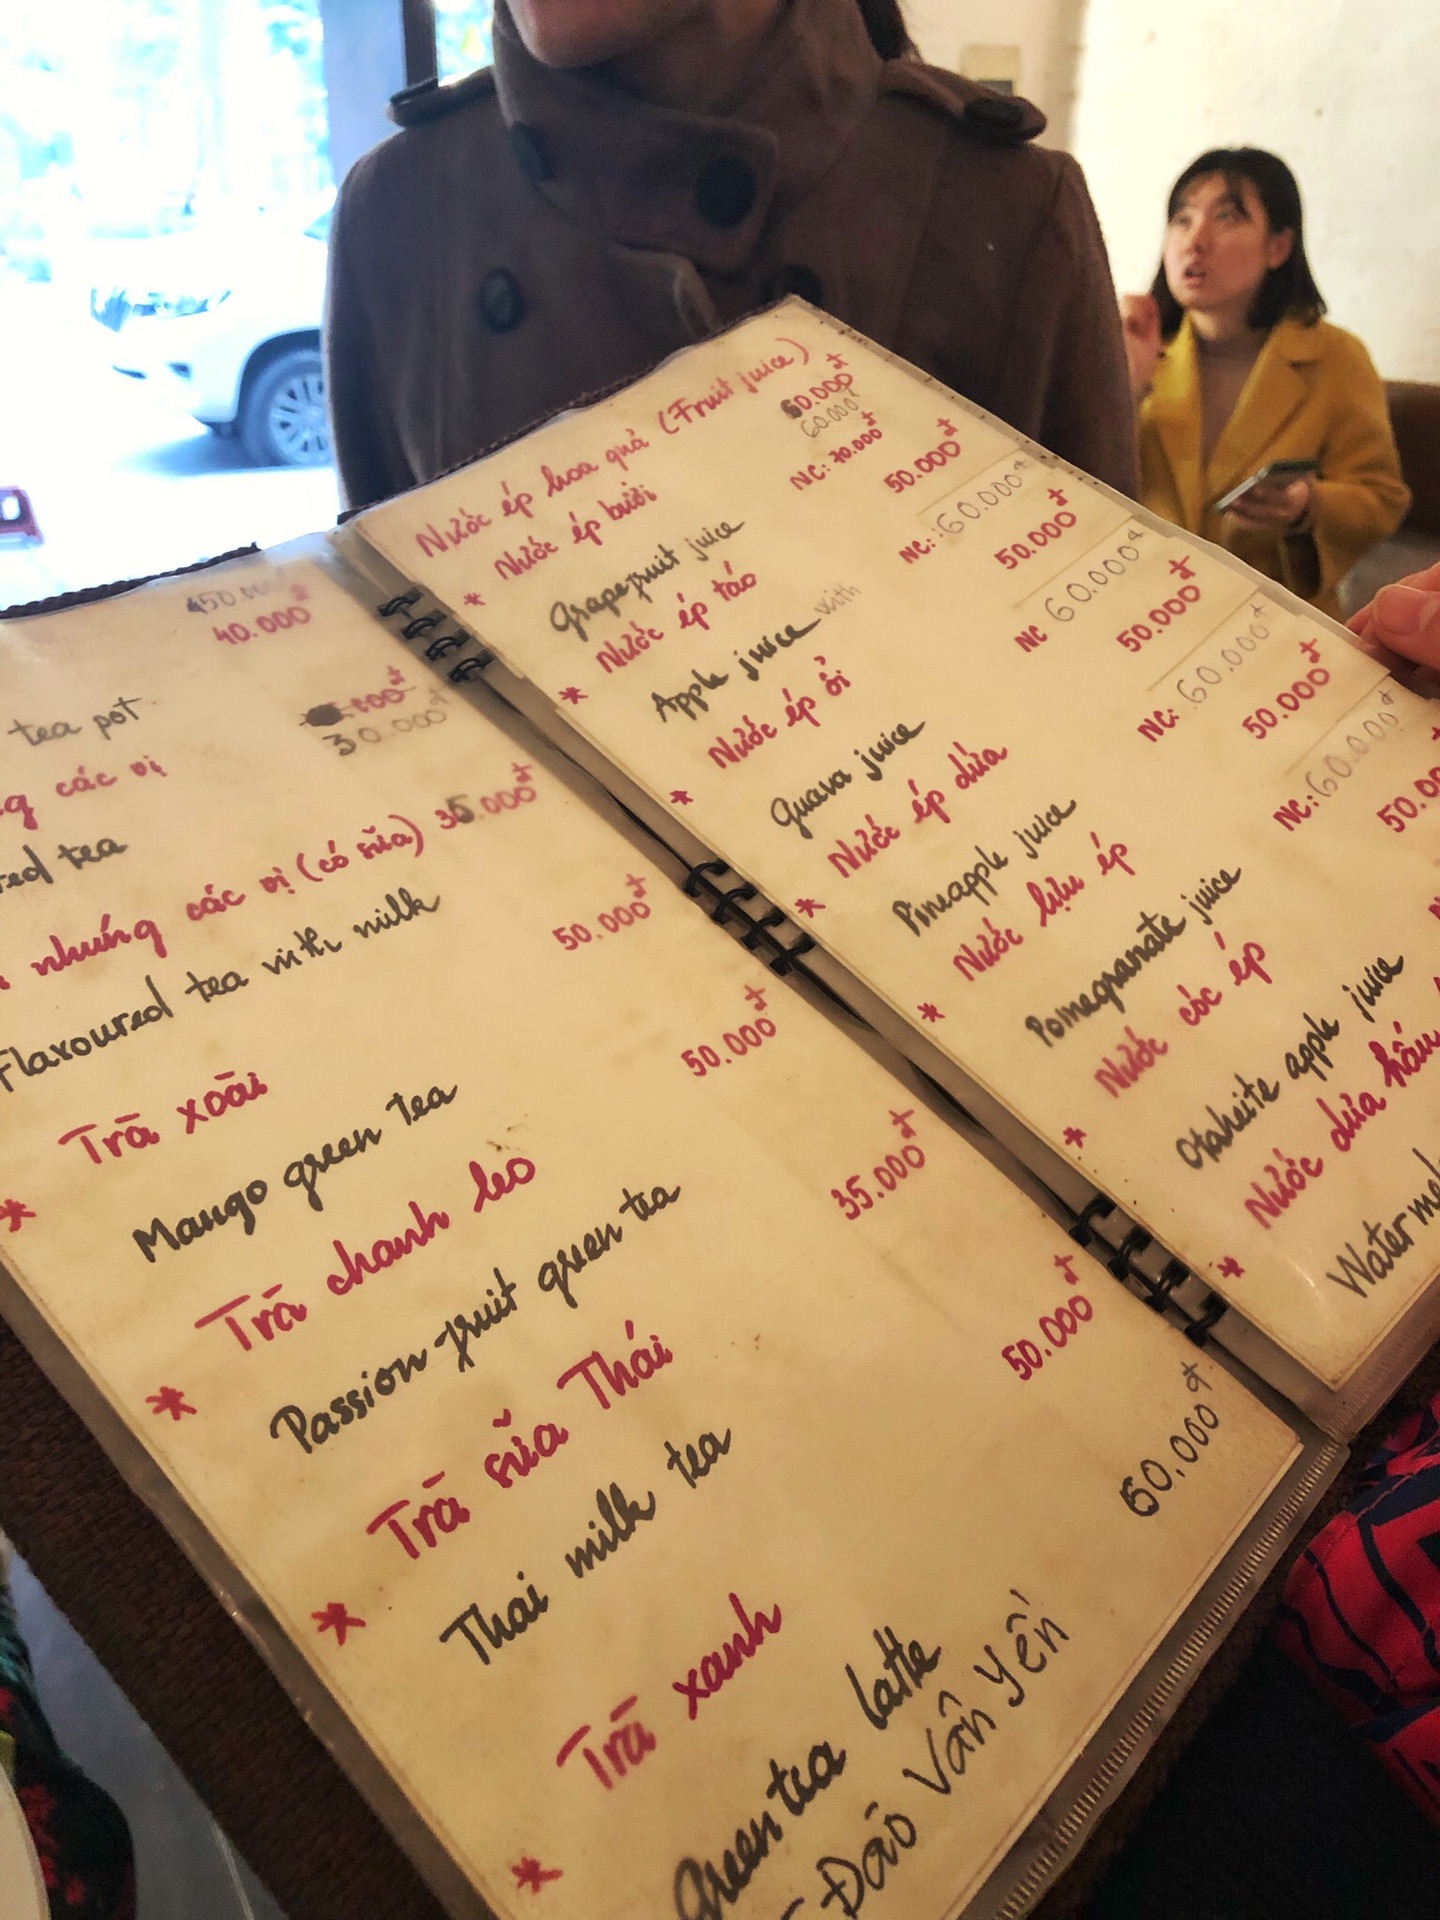 40.000đ
tea pot
các vị
30.000đ
tea
nhúng các vị (có sữa) 35.000đ
Flavoured tea with milk
* Trà xoài 50.000đ
Mango green tea
* Trà chanh leo 50.000đ
Passion fruit green tea
* Trà sữa Thái 35.000đ
Thai milk tea
* Trà xanh 50.000đ
Green tea latte
Đào Vân Yên 60.000đ
Nước ép hoa quả (Fruit juice)
* Nước ép bưởi 60.000đ
60.000đ
Grapefruit juice NC: 70.000đ
* Nước ép táo 50.000đ
Apple juice with NC: 60.000đ
* Nước ép ổi 50.000đ
Guava juice NC 60.000đ
* Nước ép dứa 50.000đ
Pineapple juice NC: 60.000đ
* Nước lựu ép 50.000đ
Pomegranate juice NC: 60.000đ
* Nước cóc ép
Otaheite apple juice
* Nước dưa hấu